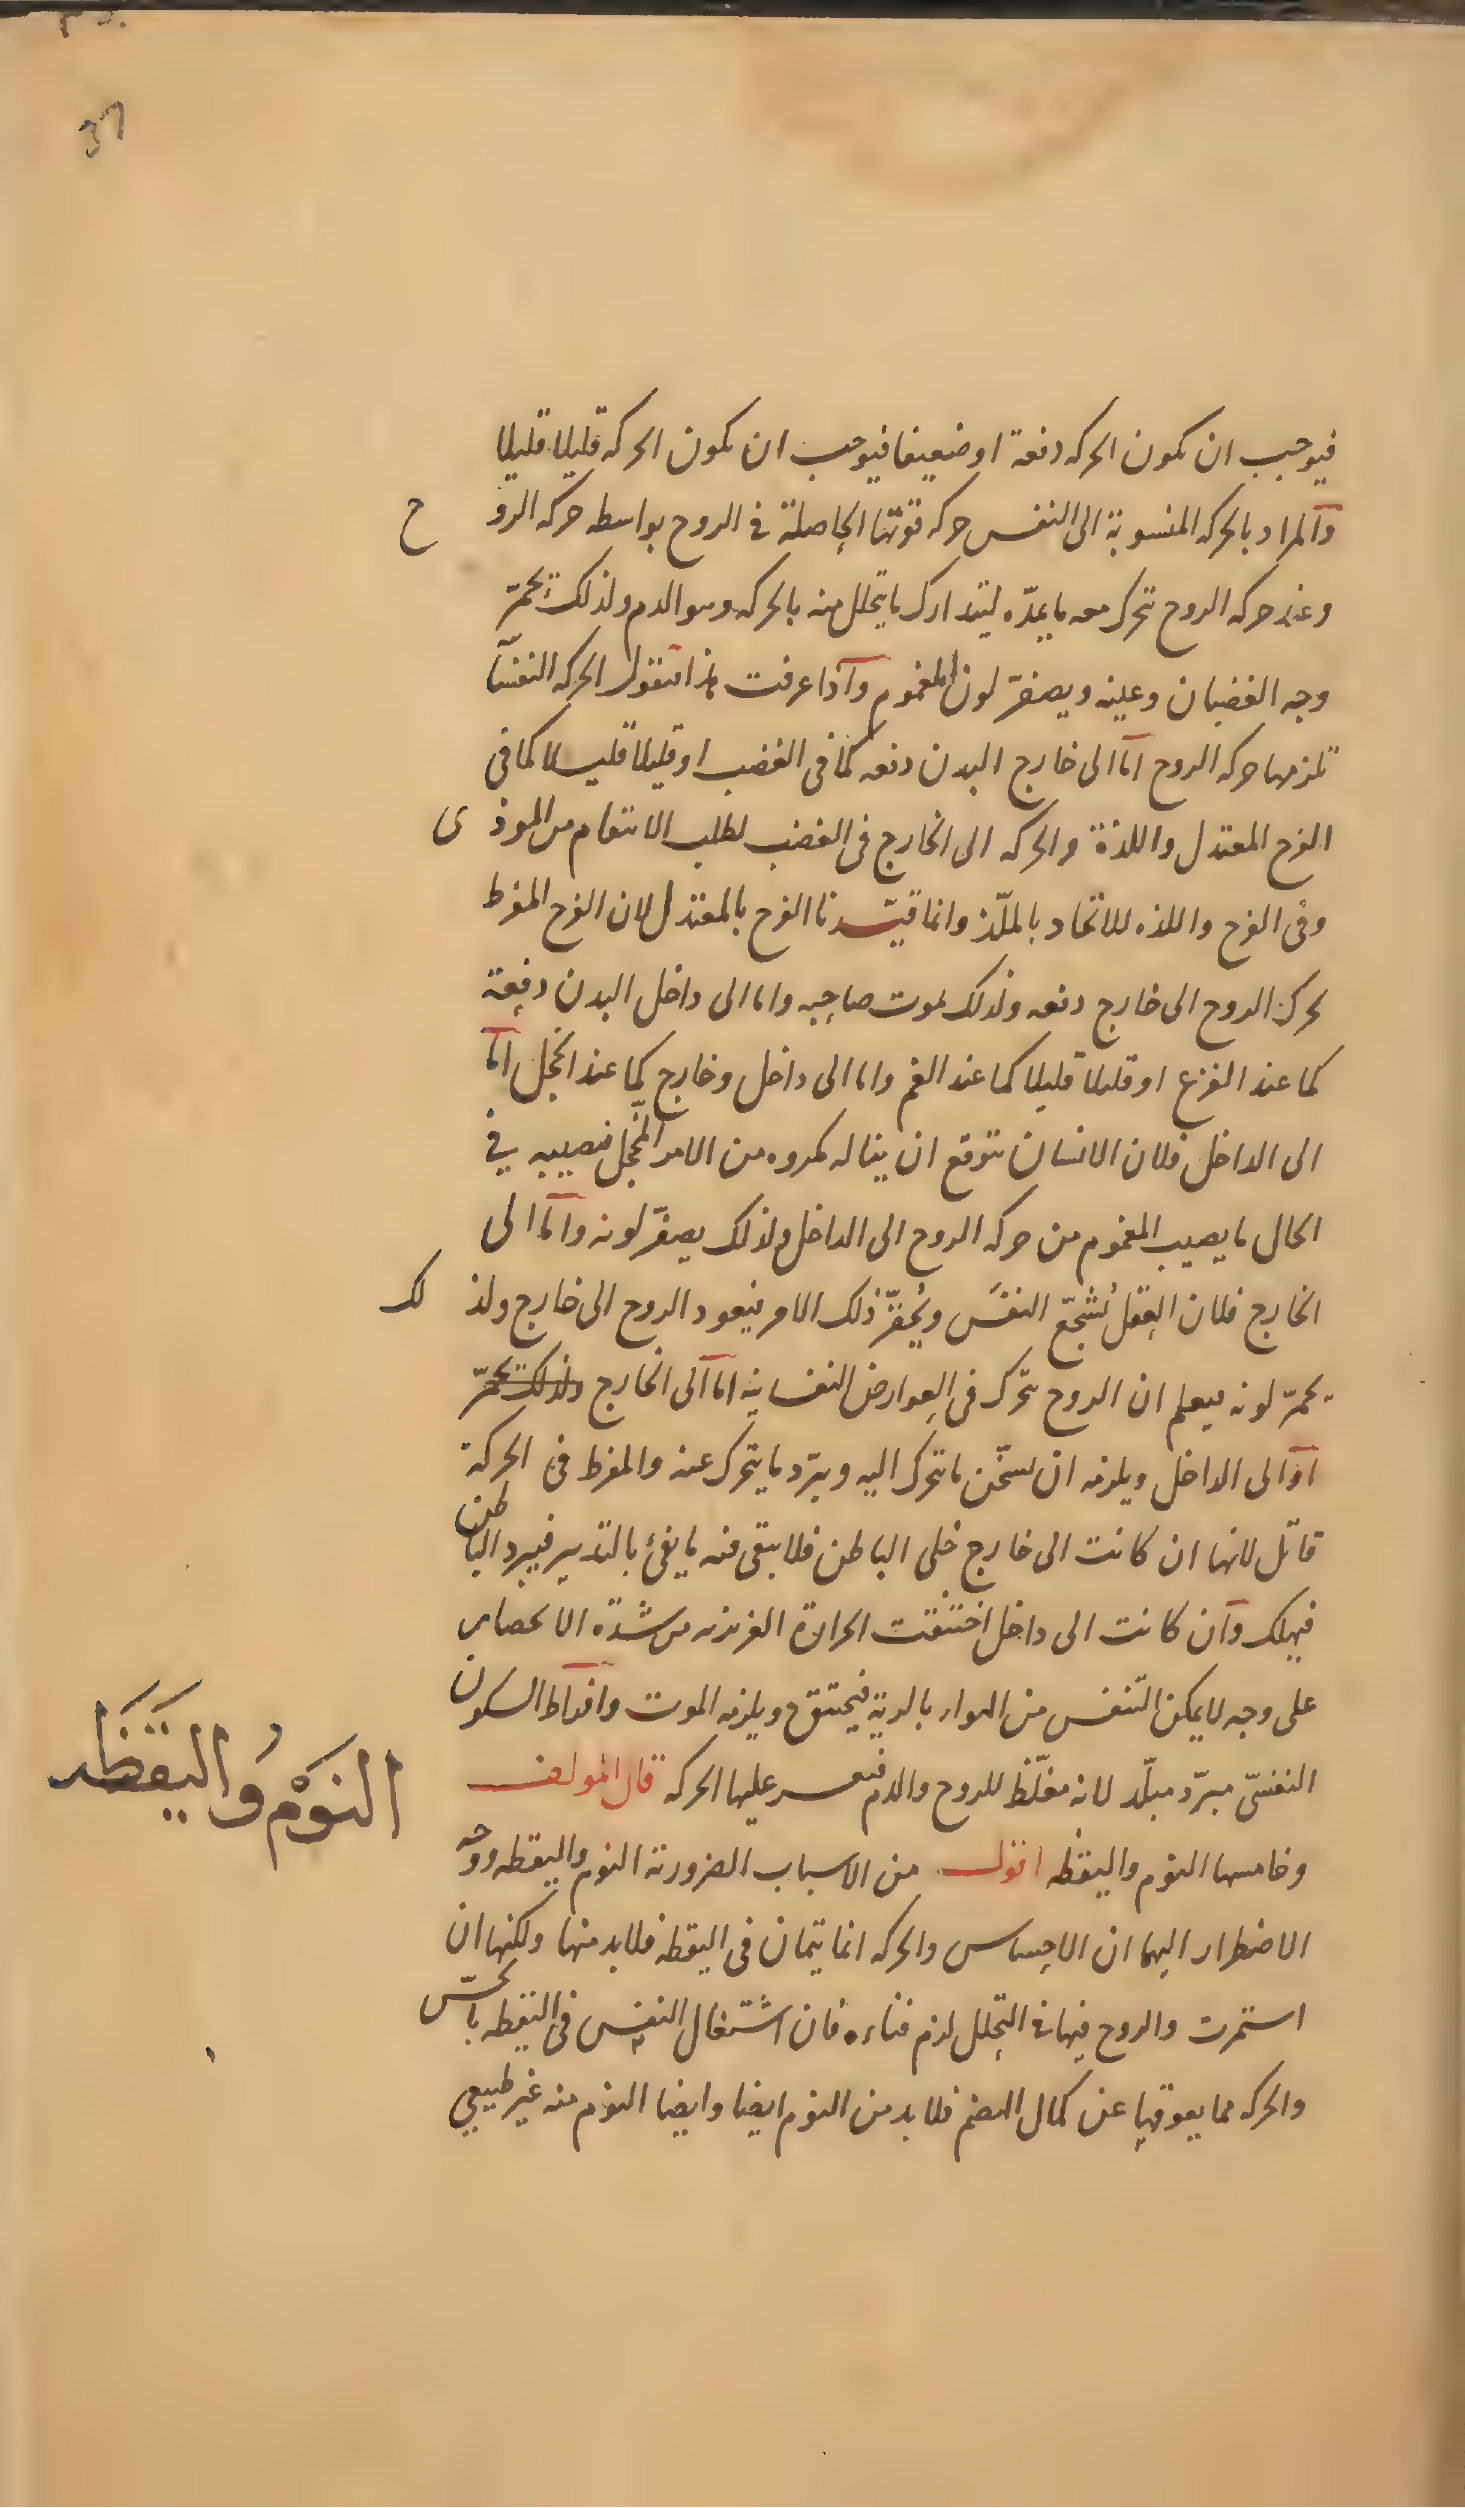 37
فيوجب ان تكون الحركه دفعة او ضعيفا فيوجب ان تكون الحركه قليلا قليلا
والمراد بالحركه المنسوبة الى النفس حركه قوتها الحاصلة فى الروح بواسطه حركه الروح
وعند حركه الروح تتحرك معه ما يمدّه ليتدارك ما يتحلل منه بالحركه وهو الدم ولذلك يحمرّ
وجه الغضبان وعينه ويصفرّ لون المغموم واذا عرفت هذا فنقول الحركه النفسا
تلزمها حركه الروح امّا الى خارج البدن دفعه كما فى الغضب او قليلا قليلا كما فى
الفرح المعتدل واللذة والحركه الى الخارج فى الغضب لطلب الانتقام من الموذى
وفى الفرح واللذه للاتحاد بالملّذ وانما قيّدنا الفرح بالمعتدل لان الفرح المفرط
يحرك الروح الى خارج دفعه ولذلك يموت صاحبه واما الى داخل البدن دفعة
كما عند الفزع او قليلا قليلا كما عند الغم واما الى داخل وخارج كما عند الخجل امّا
الى الداخل فلان الانسان يتوقع ان يناله مكروه من الامر المخجل فيصيبه فى
الحال ما يصيب المغموم من حركه الروح الى الداخل ولذلك يصفرّ لونه وامّا الى
الخارج فلان العقل يُشجّع النفسَ ويُحقّر ذلك الامر فيعود الروح الى خارج ولذلك
يحمرّ لونه فيعلم ان الروح تتحرك فى العوارض النفسانيه اما الى الخارج ولذلك يحمرّ
او الى الداخل ويلزمه ان يسخّن ما تتحرك اليه ويبرّد ما يتحرك عنه والمفرط فى الحركة
قاتل لانها ان كانت الى خارج خلى الباطن فلا يبقى منه ما يفئ بالتدبير فيبرد الباطن
فيهلك وان كانت الى داخل اختنقت الحرارة الغريزيه من شدّة الانحصار
على وجه لا يمكن التنفس من الهواء بالرية فيختنق ويلزمه الموت وافراط السكون
النفسىّ مبرّد مبلّد لانه مغلّظ للروح والدم فيعسر عليها الحركه قال المولف
وخامسها النوم واليقظه اقول من الاسباب الضرورية النوم واليقظه ووجه
الاضطرار اليهما ان الاحساس والحركه انما يتمان فى اليقظه فلابد منها ولكنها ان
استمرت والروح فيها فى التحلل لزم فناءه فان اشتغال النفس فى اليقظه بالحسّ
والحركه مما يعوقها عن كمال الهضم فلابد من النوم ايضا وايضا النوم منه غير طبيعى
النَوْم وَاليَقَظَه